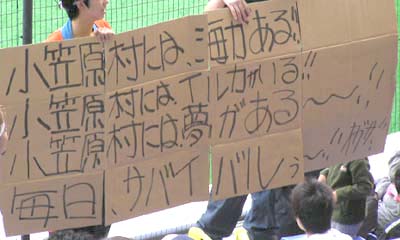 小笠原村には、海がある〃
小笠原村には、イルカがいる〃
小笠原村には、夢がある〜〜〃
毎日、サバイバルぅ〃